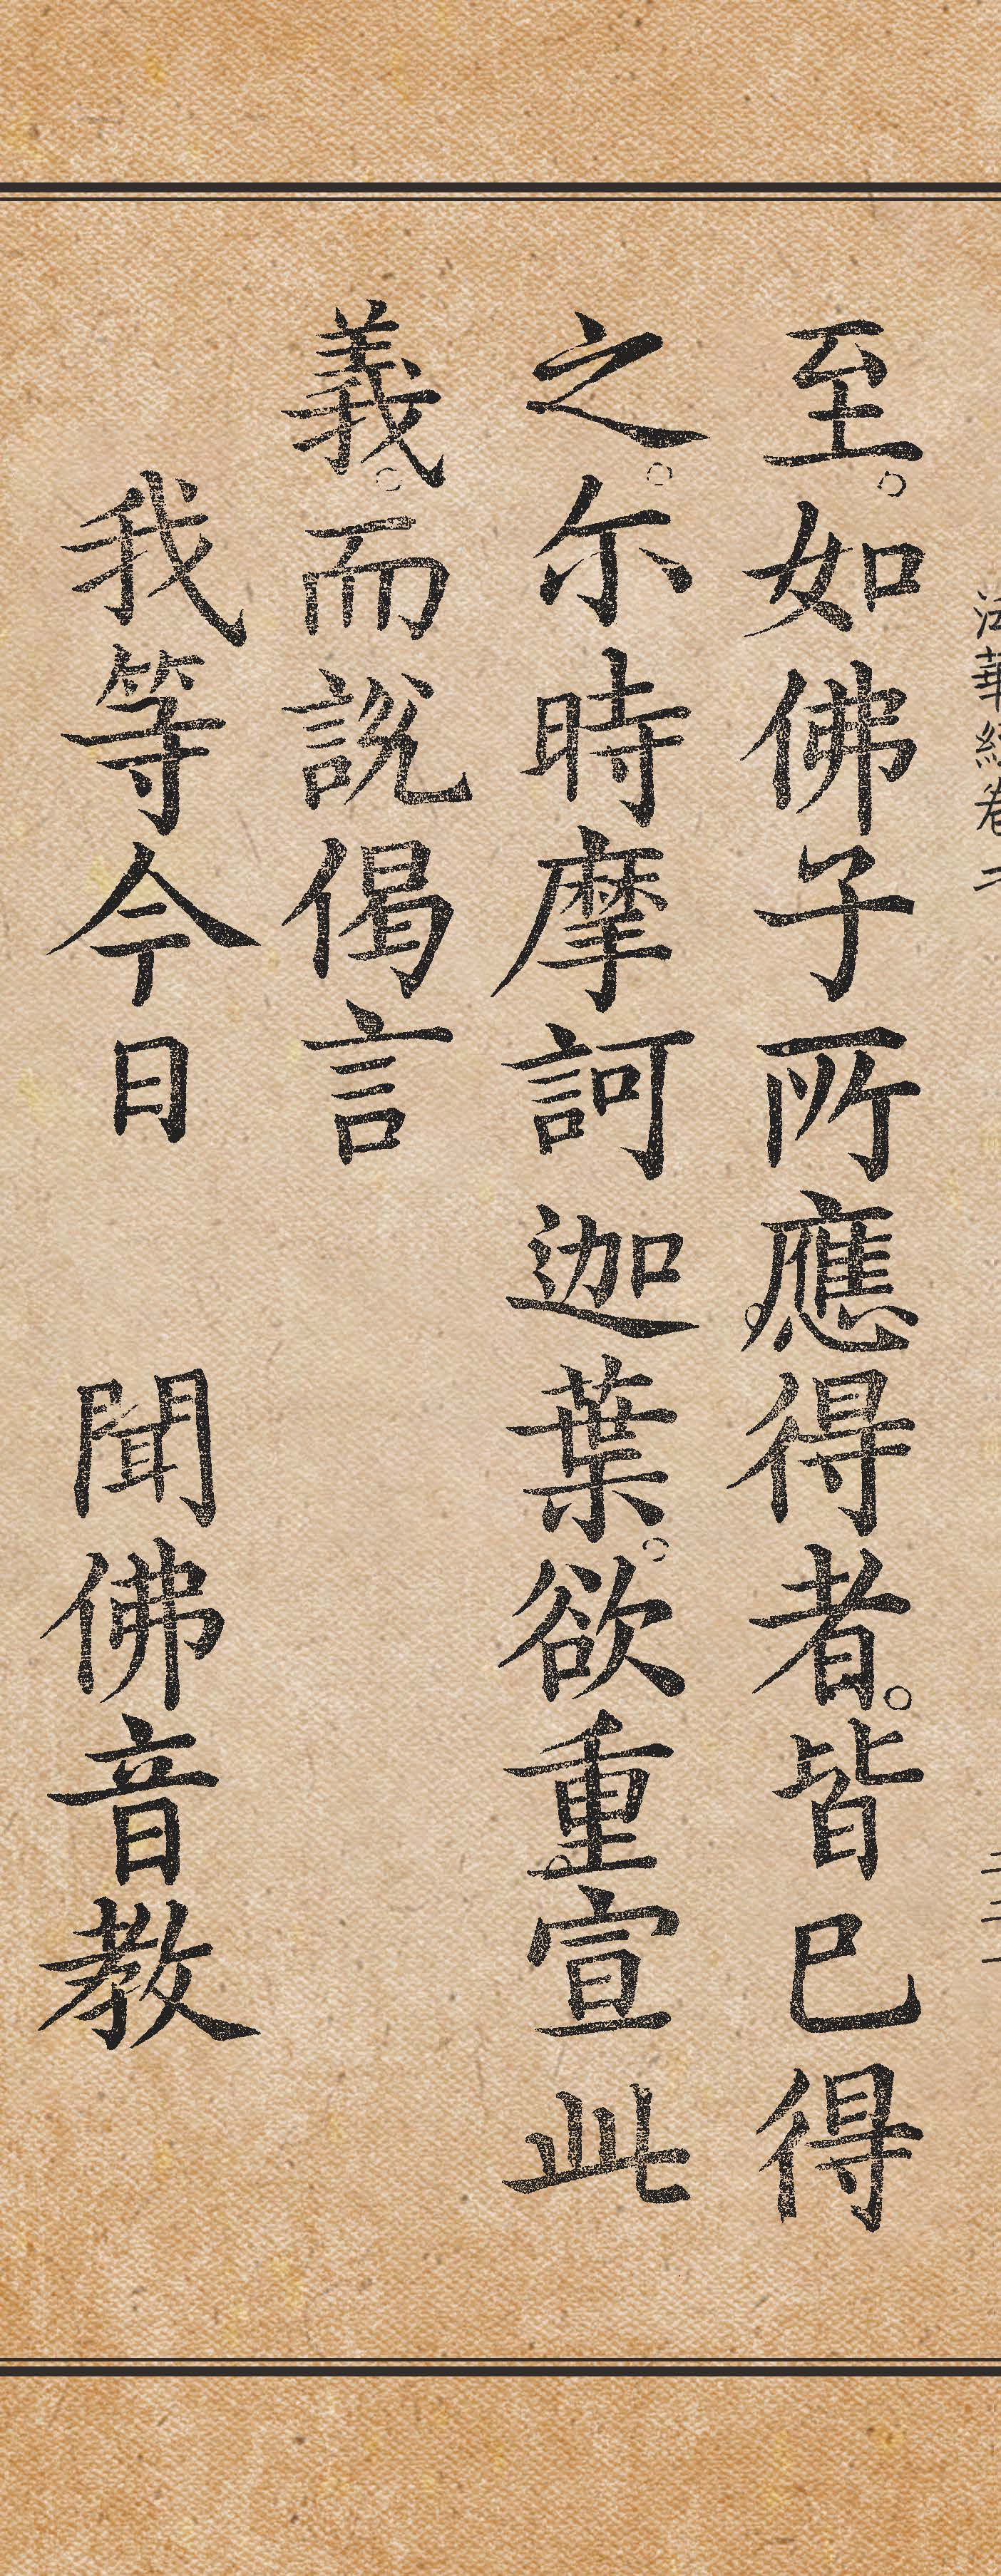 法華經卷二
至。如佛子所應得者。皆已得
之。尒時摩訶迦葉。欲重宣此
義。而說偈言
我等今日　聞佛音教